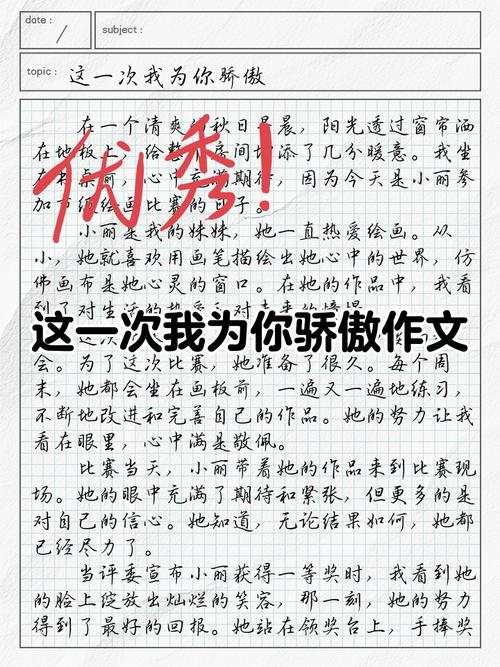 date :
subject :
topic : 这一次我为你骄傲
在一个清爽的秋日早晨，阳光透过窗帘洒
在地板上，给整个房间增添了几分暖意。我坐
在书桌前，心中充满期待，因为今天是小丽参
加市级绘画比赛的日子。
优秀！
小丽是我的妹妹，她一直热爱绘画。从
小，她就喜欢用画笔描绘出她心中的世界，仿
佛画布是她心灵的窗口。在她的作品中，我看
到了对生活的热爱和对未来的憧憬。
这一次我为你骄傲作文
会。为了这次比赛，她准备了很久。每个周
末，她都会坐在画板前，一遍又一遍地练习，
不断地改进和完善自己的作品。她的努力让我
看在眼里，心中满是敬佩。
比赛当天，小丽带着她的作品来到比赛现
场。她的眼中充满了期待和紧张，但更多的是
对自己的信心。她知道，无论结果如何，她都
已经尽力了。
当评委宣布小丽获得一等奖时，我看到她
的脸上绽放出灿烂的笑容，那一刻，她的努力
得到了最好的回报。她站在领奖台上，手捧奖